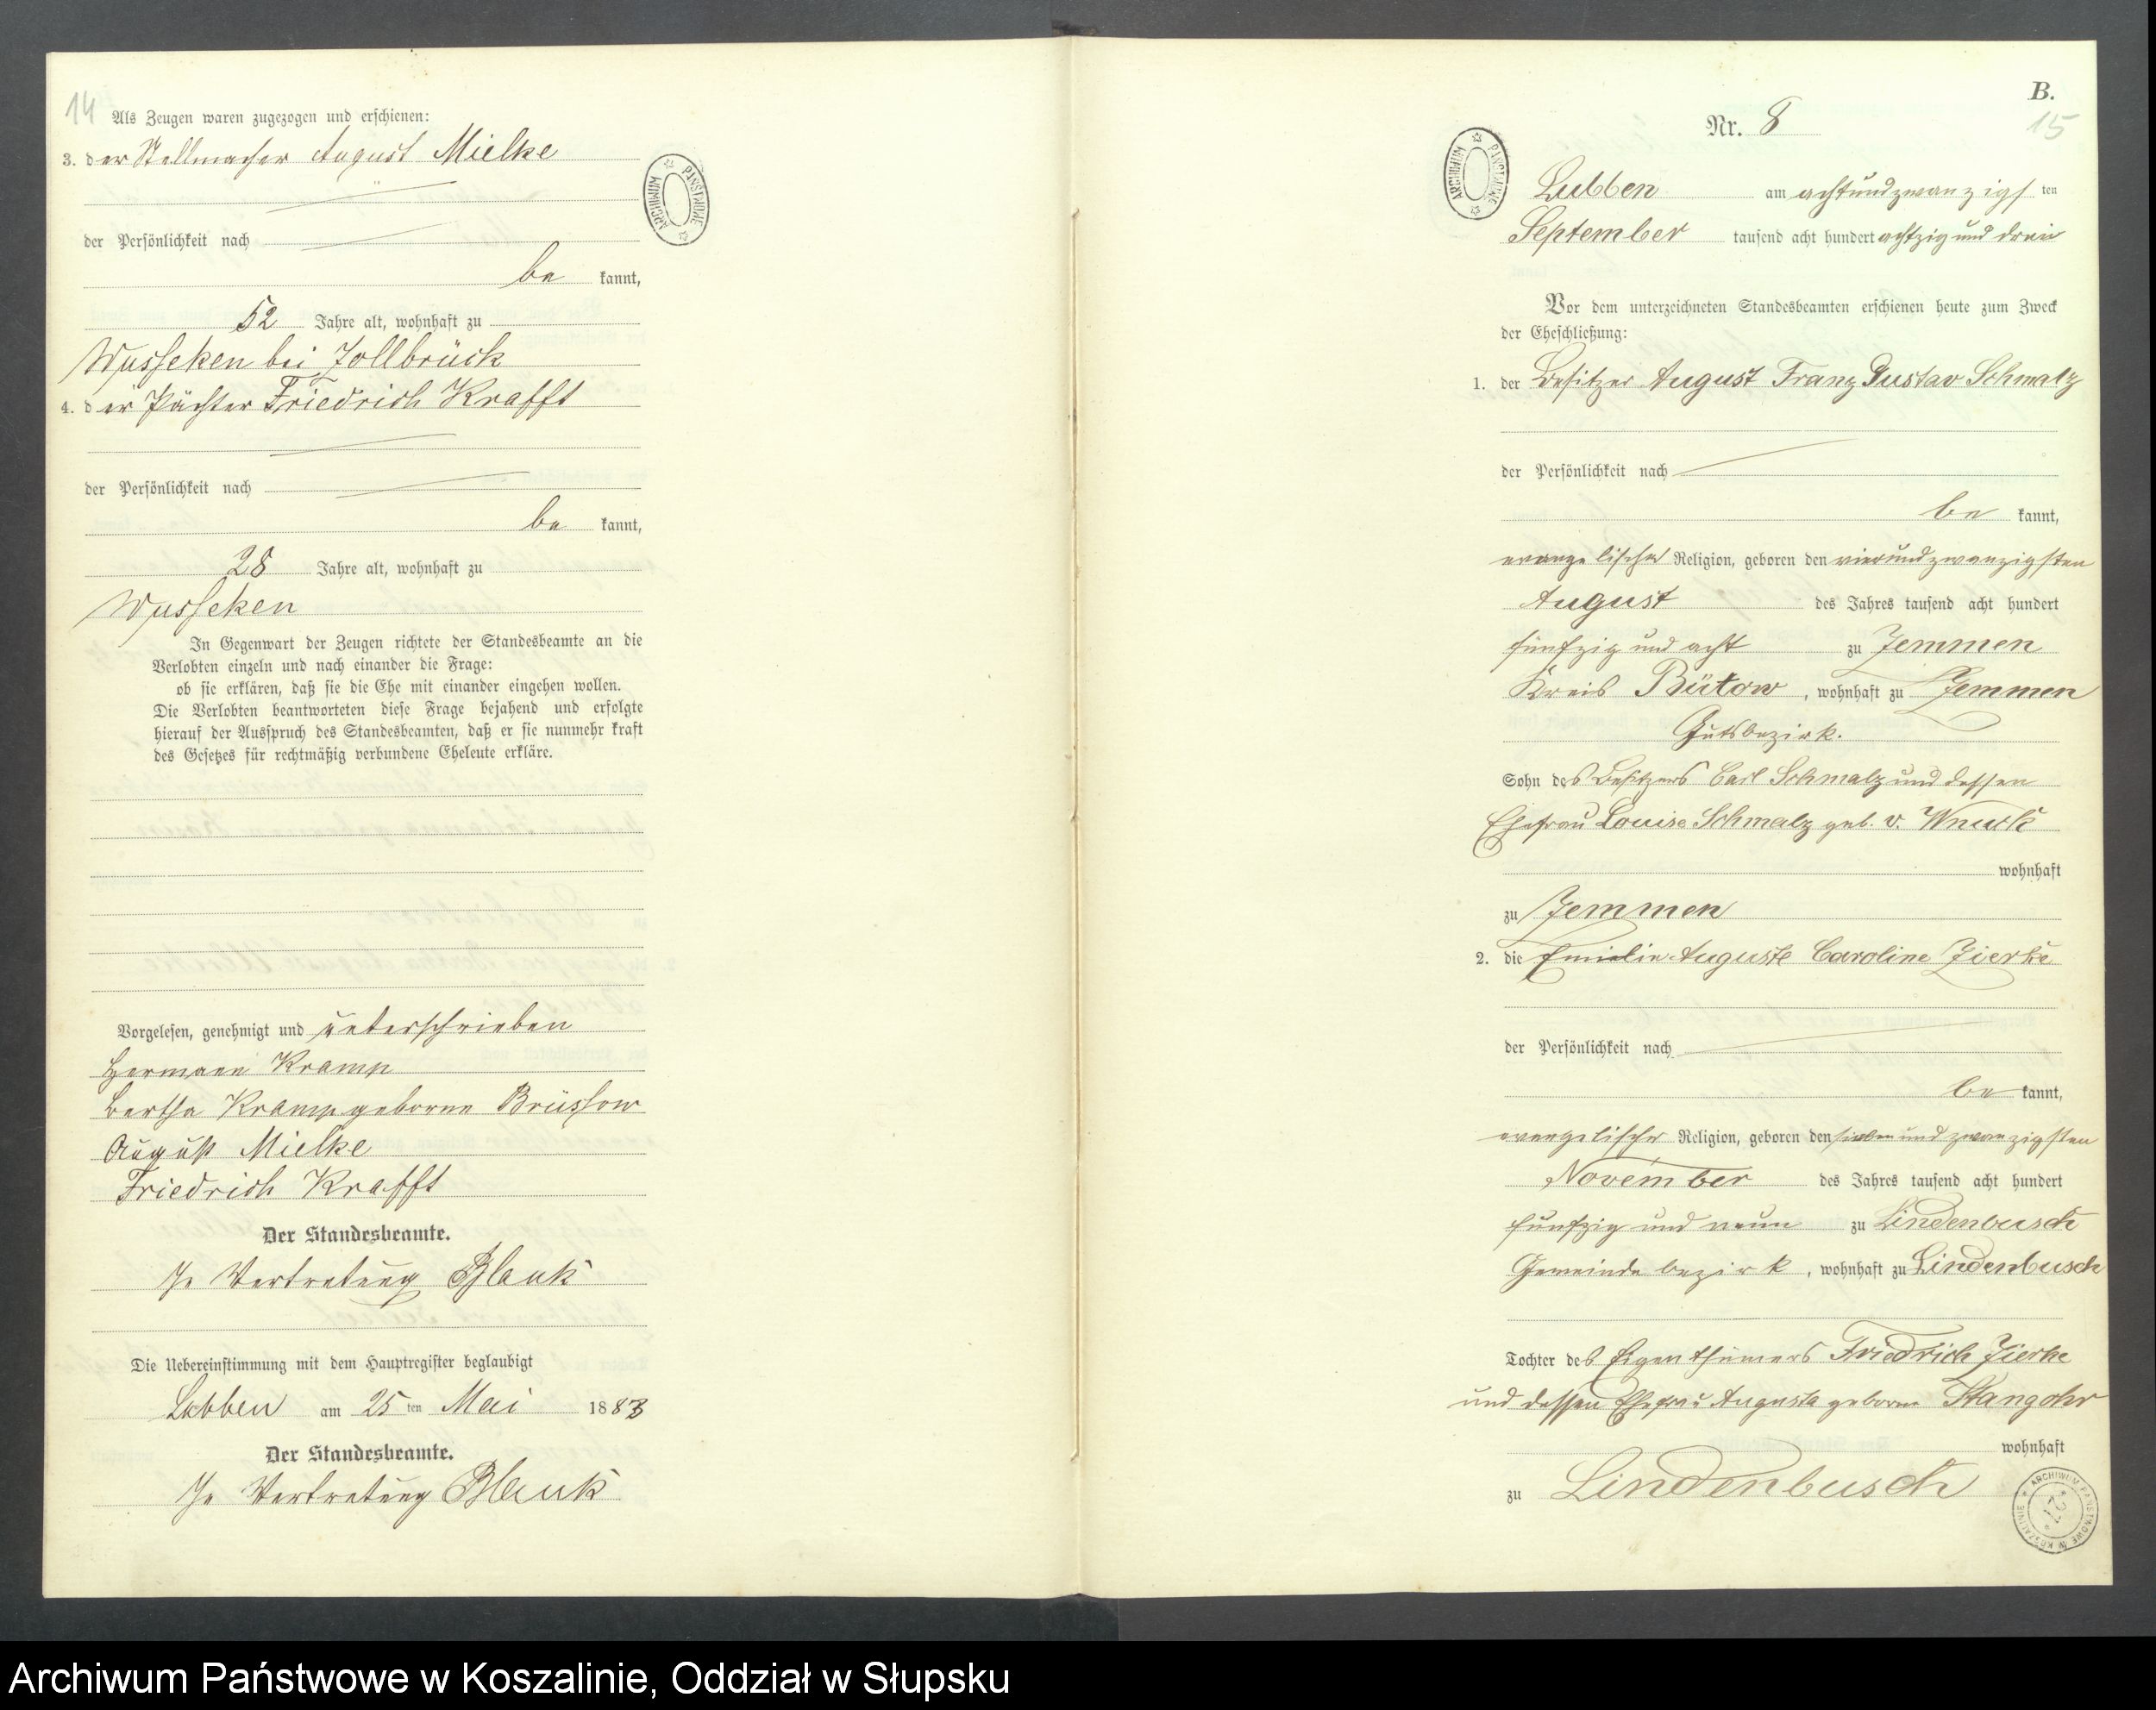 14
Als Zeugen waren zugezogen und erschienen:
3. der Stellmacher August Mielke
der Persönlichkeit nach
be kannt,
52 Jahre alt, wohnhaft zu
Wusseken bei Zollbrück
4. der Pächter Friedrich Krafft
der Persönlichkeit nach
be kannt,
28 Jahre alt, wohnhaft zu
Wusseken
In Gegenwart der Zeugen richtete der Standesbeamte an die
Verlobten einzeln und nach einander die Frage:
ob sie erklären, daß sie die Ehe mit einander eingehen wollen.
Die Verlobten beantworteten diese Frage bejahend und erfolgte
hierauf der Ausspruch des Standesbeamten, daß er sie nunmehr kraft
des Gesetzes für rechtmäßig verbundene Eheleute erkläre.
Vorgelesen, genehmigt und unterschrieben
Hermann Kramp
Bertha Kramp geborne Brüssow
August Mielke
Friedrich Krafft
Der Standesbeamte.
In Vertretung Blank
Die Uebereinstimmung mit dem Hauptregister beglaubigt
Lubben am 25 ten Mai 1883
Der Standesbeamte.
In Vertretung Blank
ARCHIWUM PAŃSTWOWE
B.
15
Nr. 8
ARCHIWUM PAŃSTWOWE
Lubben am achtundzwanzigs ten
September tausend acht hundert achtzig und drei
Vor dem unterzeichneten Standesbeamten erschienen heute zum Zweck
der Eheschließung:
1. der Besitzer August Franz Gustav Schmalz
der Persönlichkeit nach
be kannt,
evangelischer Religion, geboren den vierundzwanzigsten
August des Jahres tausend acht hundert
fünfzig und acht zu Jemmen
Kreis Bütow, wohnhaft zu Jemmen
Gutsbezirk.
Sohn des Besitzers Carl Schmalz und dessen
Ehefrau Louise Schmalz geb. v. Wnuck
wohnhaft
zu Jemmen
2. die Emilie Auguste Caroline Zierke
der Persönlichkeit nach
be kannt,
evangelischer Religion, geboren den siebenundzwanzigsten
November des Jahres tausend acht hundert
fünfzig und neun zu Lindenbusch
Gemeindebezirk, wohnhaft zu Lindenbusch
Tochter des Eigenthümers Friedrich Zierke
und dessen Ehefrau Augusta geborne
wohnhaft
zu Lindenbusch
ARCHIWUM PAŃSTWOWE W KOSZALINIE
Archiwum Państwowe w Koszalinie, Oddział w Słupsku